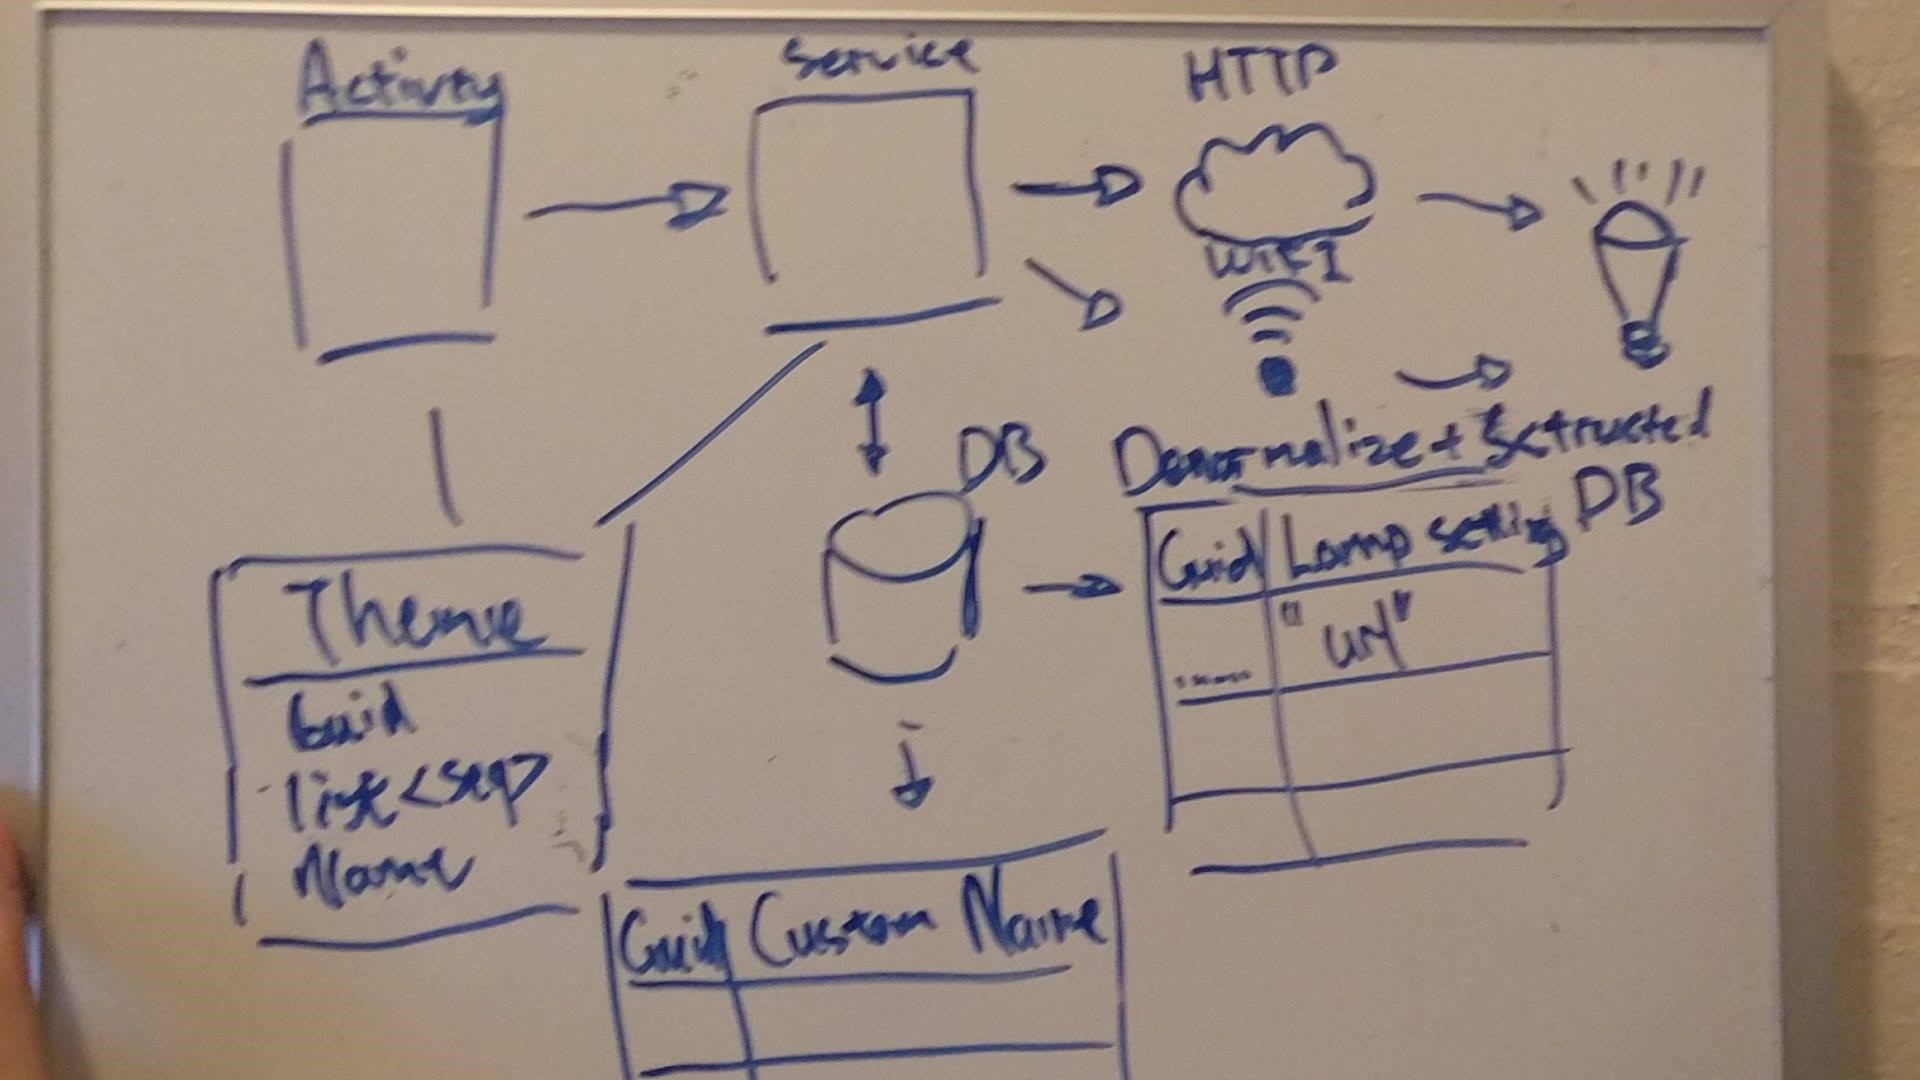 Activity
Service
HTTP
WIFI
DB
Denormalize + Sctructed
DB
Guid
Lamp setting
"url"
.....
Theme
Guid
list<seq>
Name
Guid
Custom Name